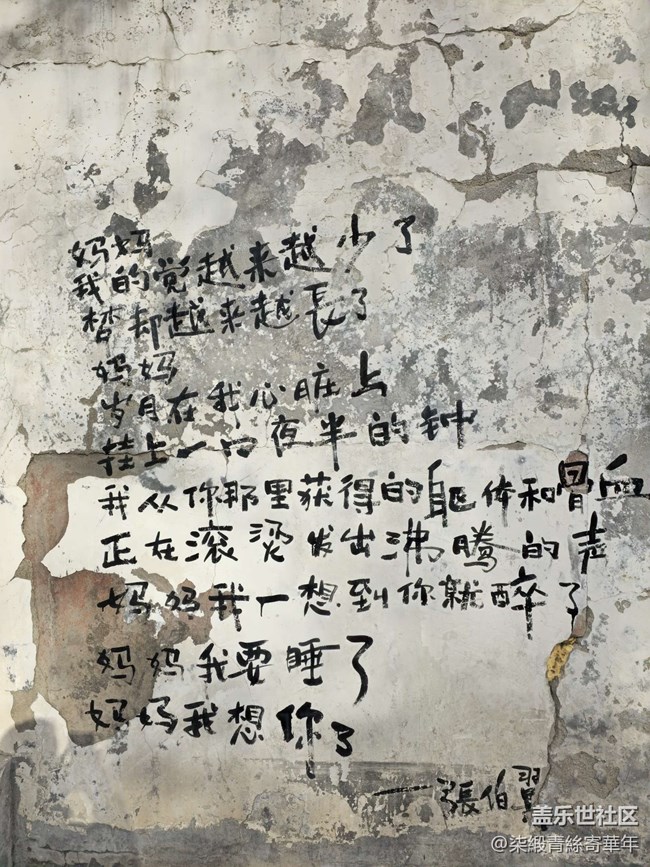 妈妈
我的觉越来越少了
梦却越来越長了
妈妈
岁月在我心脏上
挂上一口夜半的钟
我从你那里获得的躯体和骨血
正在滚烫发出沸腾的声
妈妈我一想到你就醉了
妈妈我要睡了
妈妈我想你了
——張伯翼
盖乐世社区
@柒緞青絲寄華年